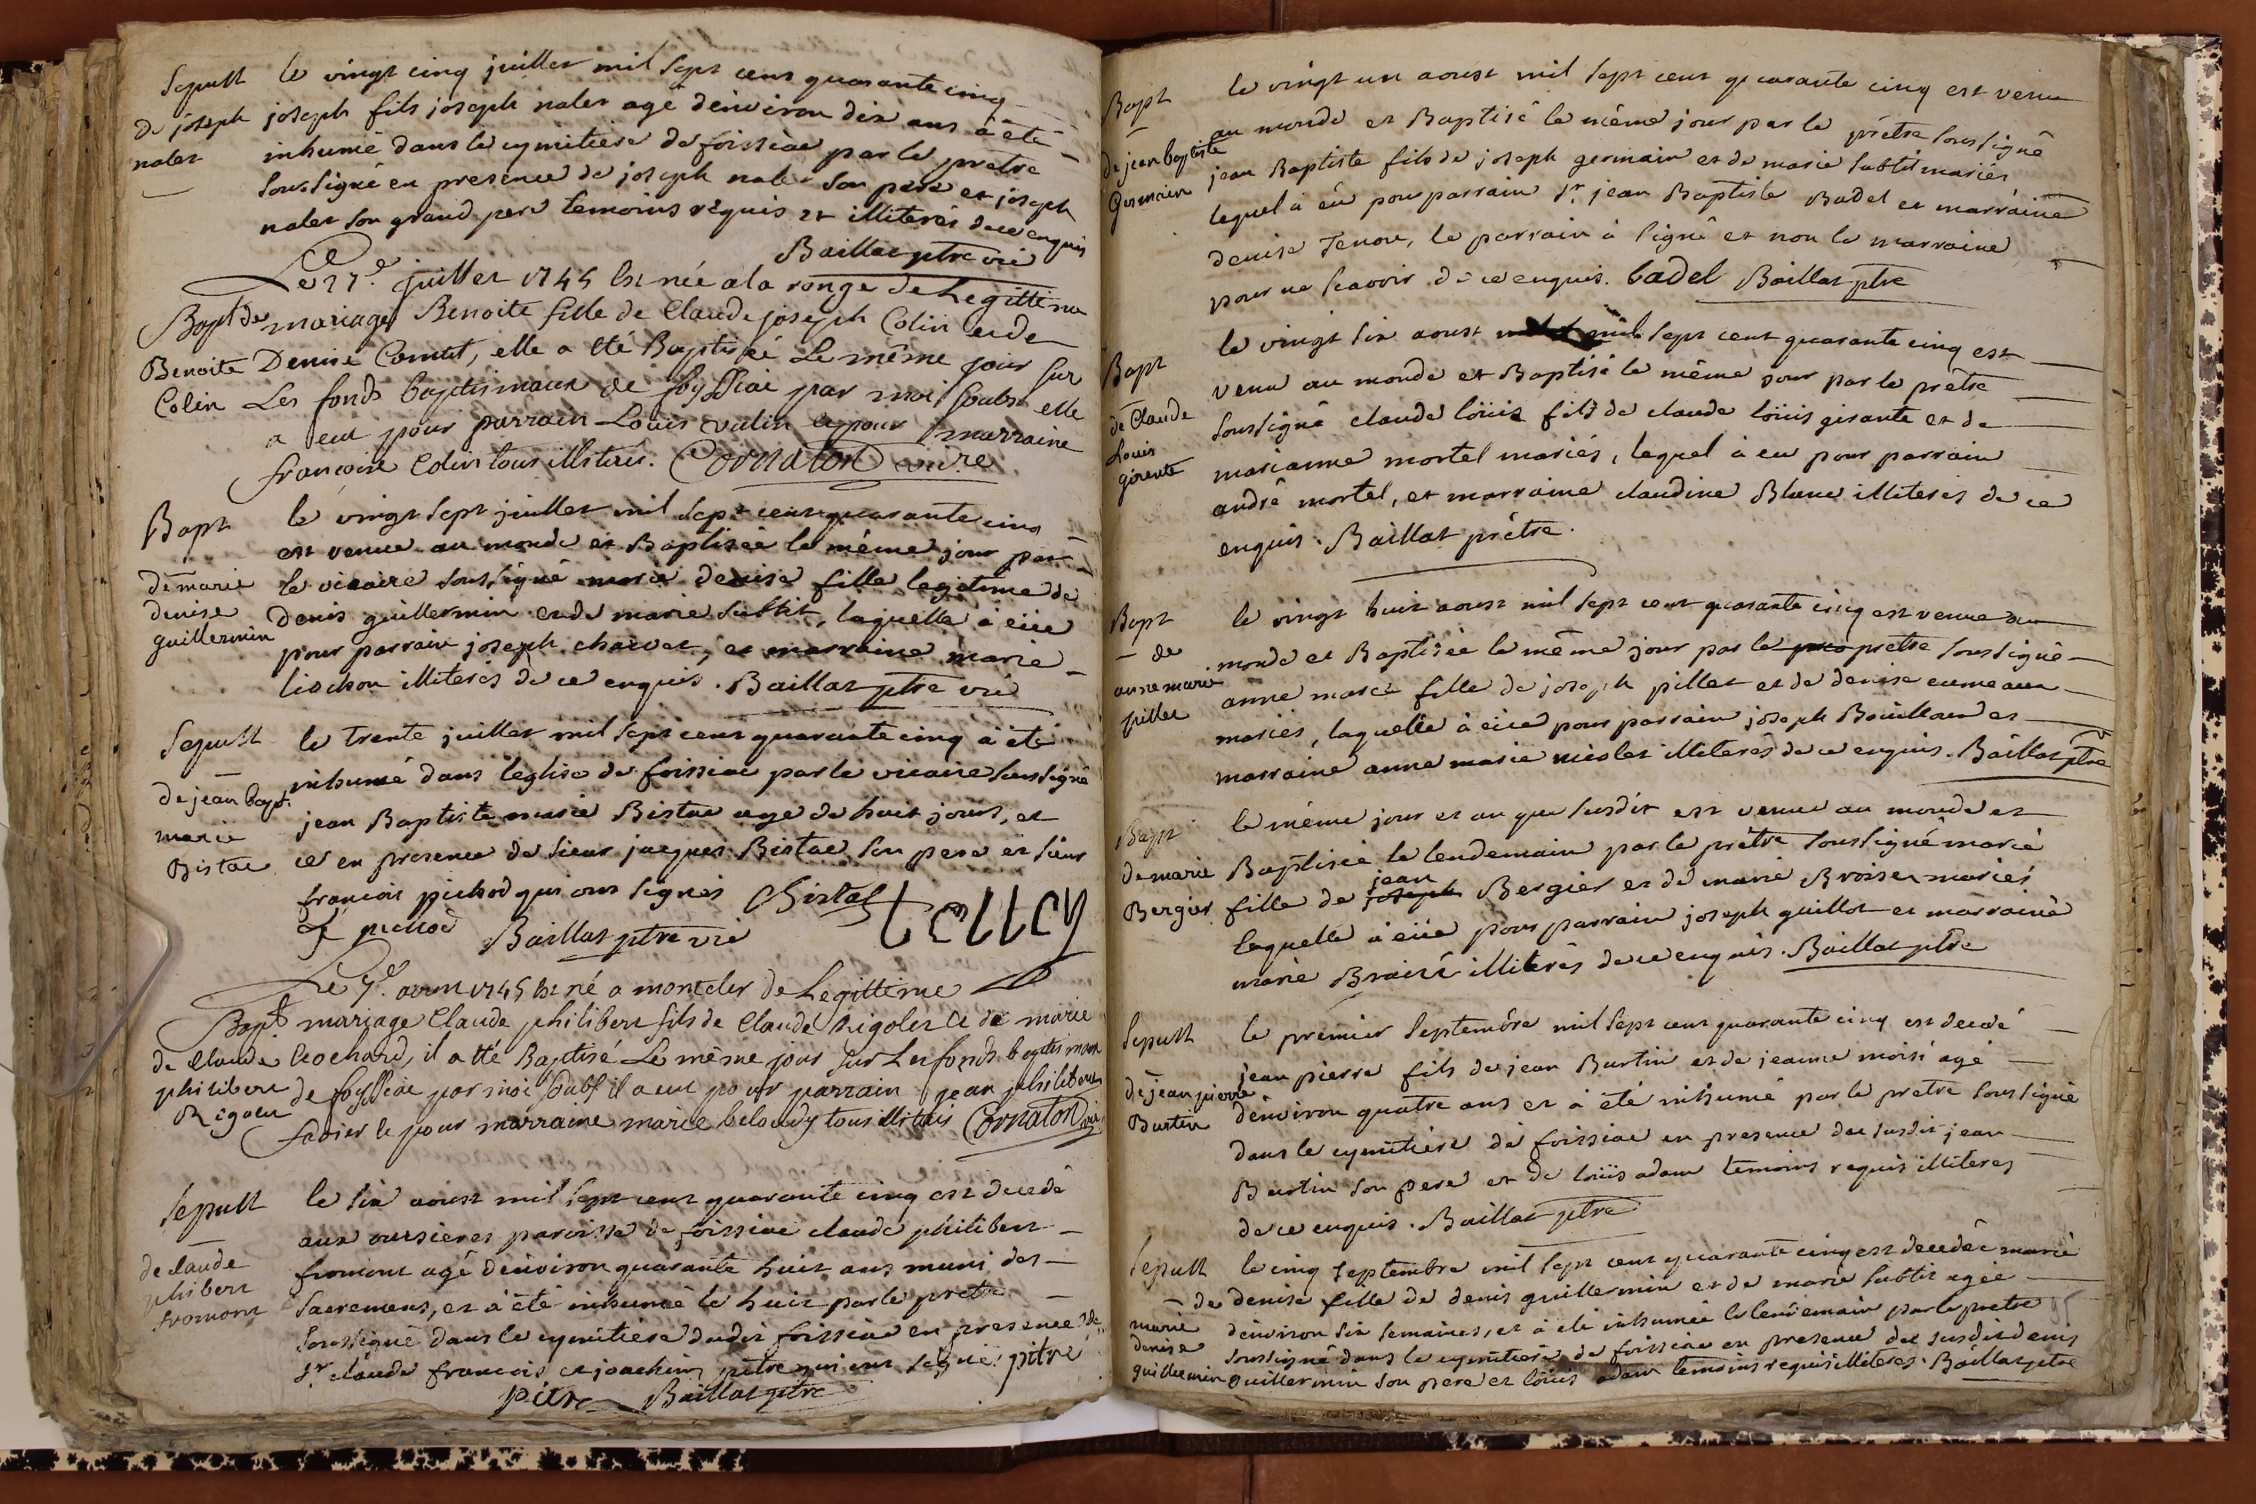 Sepult
de joseph
nalet
le vingt cinq juillet mil sept cent quarante cinq
joseph fils joseph nalet agé denviron dix ans à été
inhumé dans le cymitiere de foissiac par le prêtre
soussigné en presence de joseph nalet son pere et joseph
nalet son grand pere temoins requis et illiterés de ce enquis
Baillat ptre vic
Bapt de
Benoite
Colin
Le 27e juillet 1745 est née a la ronge de Legittime
mariage Benoite fille de Claude joseph Colin et de
Denise Comtet, elle a eté Baptisée Le même jour sur
Les fonds baptismaux de foyssiac par moi soubs elle
a eut pour parrain Louis et pour marraine
françoise Colin tous illiterés. Cornaton
Bapt
de marie
denise
guillermin
le vingt sept juillet mil sept cent quarante cinq
est venue au monde et Baptisée le même jour par
le vicaire soussigné marie denise fille legitime de
Denis guillermin et de marie subtit, laquelle à eüe
pour parrain joseph charvet, et marraine marie
liochon illiterés de ce enquis. Baillat ptre vic
Sepult
de jean bapt.
marie
Bistac
le trente juillet mil sept cent quarante cinq à été
inhumé dans leglise de foissiac par le vicaire soussigné
jean Baptiste marie Bistac age de huit jours, et
ce en presence de sieur jacques Bistac son pere et sieur
françois pichod qui ont signés
f pichod Baillat ptre vic
Bapt
de Claude
philibert
Rigolet
Le 1745 Est né a montcler de Legittime
mariage Claude philibert fils de Claude Rigolet et de marie
Liochard, il a eté Baptisé Le même jour sur Les fonds baptismaux
de foyssiac par moi soubs il a eut pour parrain jean philibert
favier et pour marraine marie beloudy tous illiterés Cornaton
Sepult
de claude
phibert
fromont
le six aoust mil sept cent quarante cinq est decedé
aux oursieres paroisse de foissiac claude philibert
fromont agé denviron quarante huit ans muni des
sacremens, et à été inhumé le huit par le prêtre
soussigné dans le cymitiere dudit foissiac en presence de
sr claude françois et joachim pitre qui ont signé. pitre
pitre Baillat ptre
Bapt
de jean baptiste
Germain
le vingt un aoust mil sept cent quarante cinq est venu
au monde et Baptisé le même jour par le prêtre soussigné
jean Baptiste fils de joseph germain et de marie subtit mariés
lequel à eû pour parrain sr. jean Baptiste Badel et marraine
denise Tenon, le parrain à signé et non la marraine
pour ne scavoir de ce enquis. badel Baillat ptre
Bapt
de Claude
Louis
girente
le vingt six aoust mil sept cent quarante cinq est
venu au monde et Baptisé le même jour par le prêtre
soussigné claude loüis fils de claude loüis girante et de
marianne mortel mariés, lequel à eu pour parrain
andré mortel, et marraine claudine Blanc illiterés de ce
enquis. Baillat prêtre.
Bapt
de
anne marie
pillet
le vingt huit aoust mil sept cent quarante cinq est venue au
monde et Baptisée le même jour par le prêtre soussigné
anne marie fille de joseph pillet et de denise
mariés, laquelle à eüe pour parrain joseph Bouilloud et
marraine anne marie nicolet illiterés de ce enquis. Baillat ptre
Bapt
de marie
Bergier
le même jour et an que susdit est venue au monde et
Baptisée le lendemain par le prêtre soussigné marie
fille de joseph jean Bergier et de marie Broiset mariés
laquelle à eüe pour parrain joseph guillot et marraine
marie Broisé illiterés de ce enquis. Baillat ptre
Sepult
de jean pierre
Burtin
le premier septembre mil sept cent quarante cinq est decedé
jean pierre fils de jean Burtin et de jeanne moisi agé
denviron quatre ans et à été inhumé par le prêtre soussigné
dans le cymitiere de foissiac en presence du susdit jean
Burtin son pere et de loüis adam temoins requis illiteres
de ce enquis. Baillat ptre
Sepult
de
marie
denise
guillermin
le cinq septembre mil sept cent quarante cinq est decedée marie
denise fille de denis guillermin et de marie subtit agée
denviron six semaines, et à été inhumée le lendemain par le prêtre
soussigné dans le cymitiere de foissiac en presence du susdit denis
guillermin son pere et loüis adam temoins requis illiteres. Baillat ptre